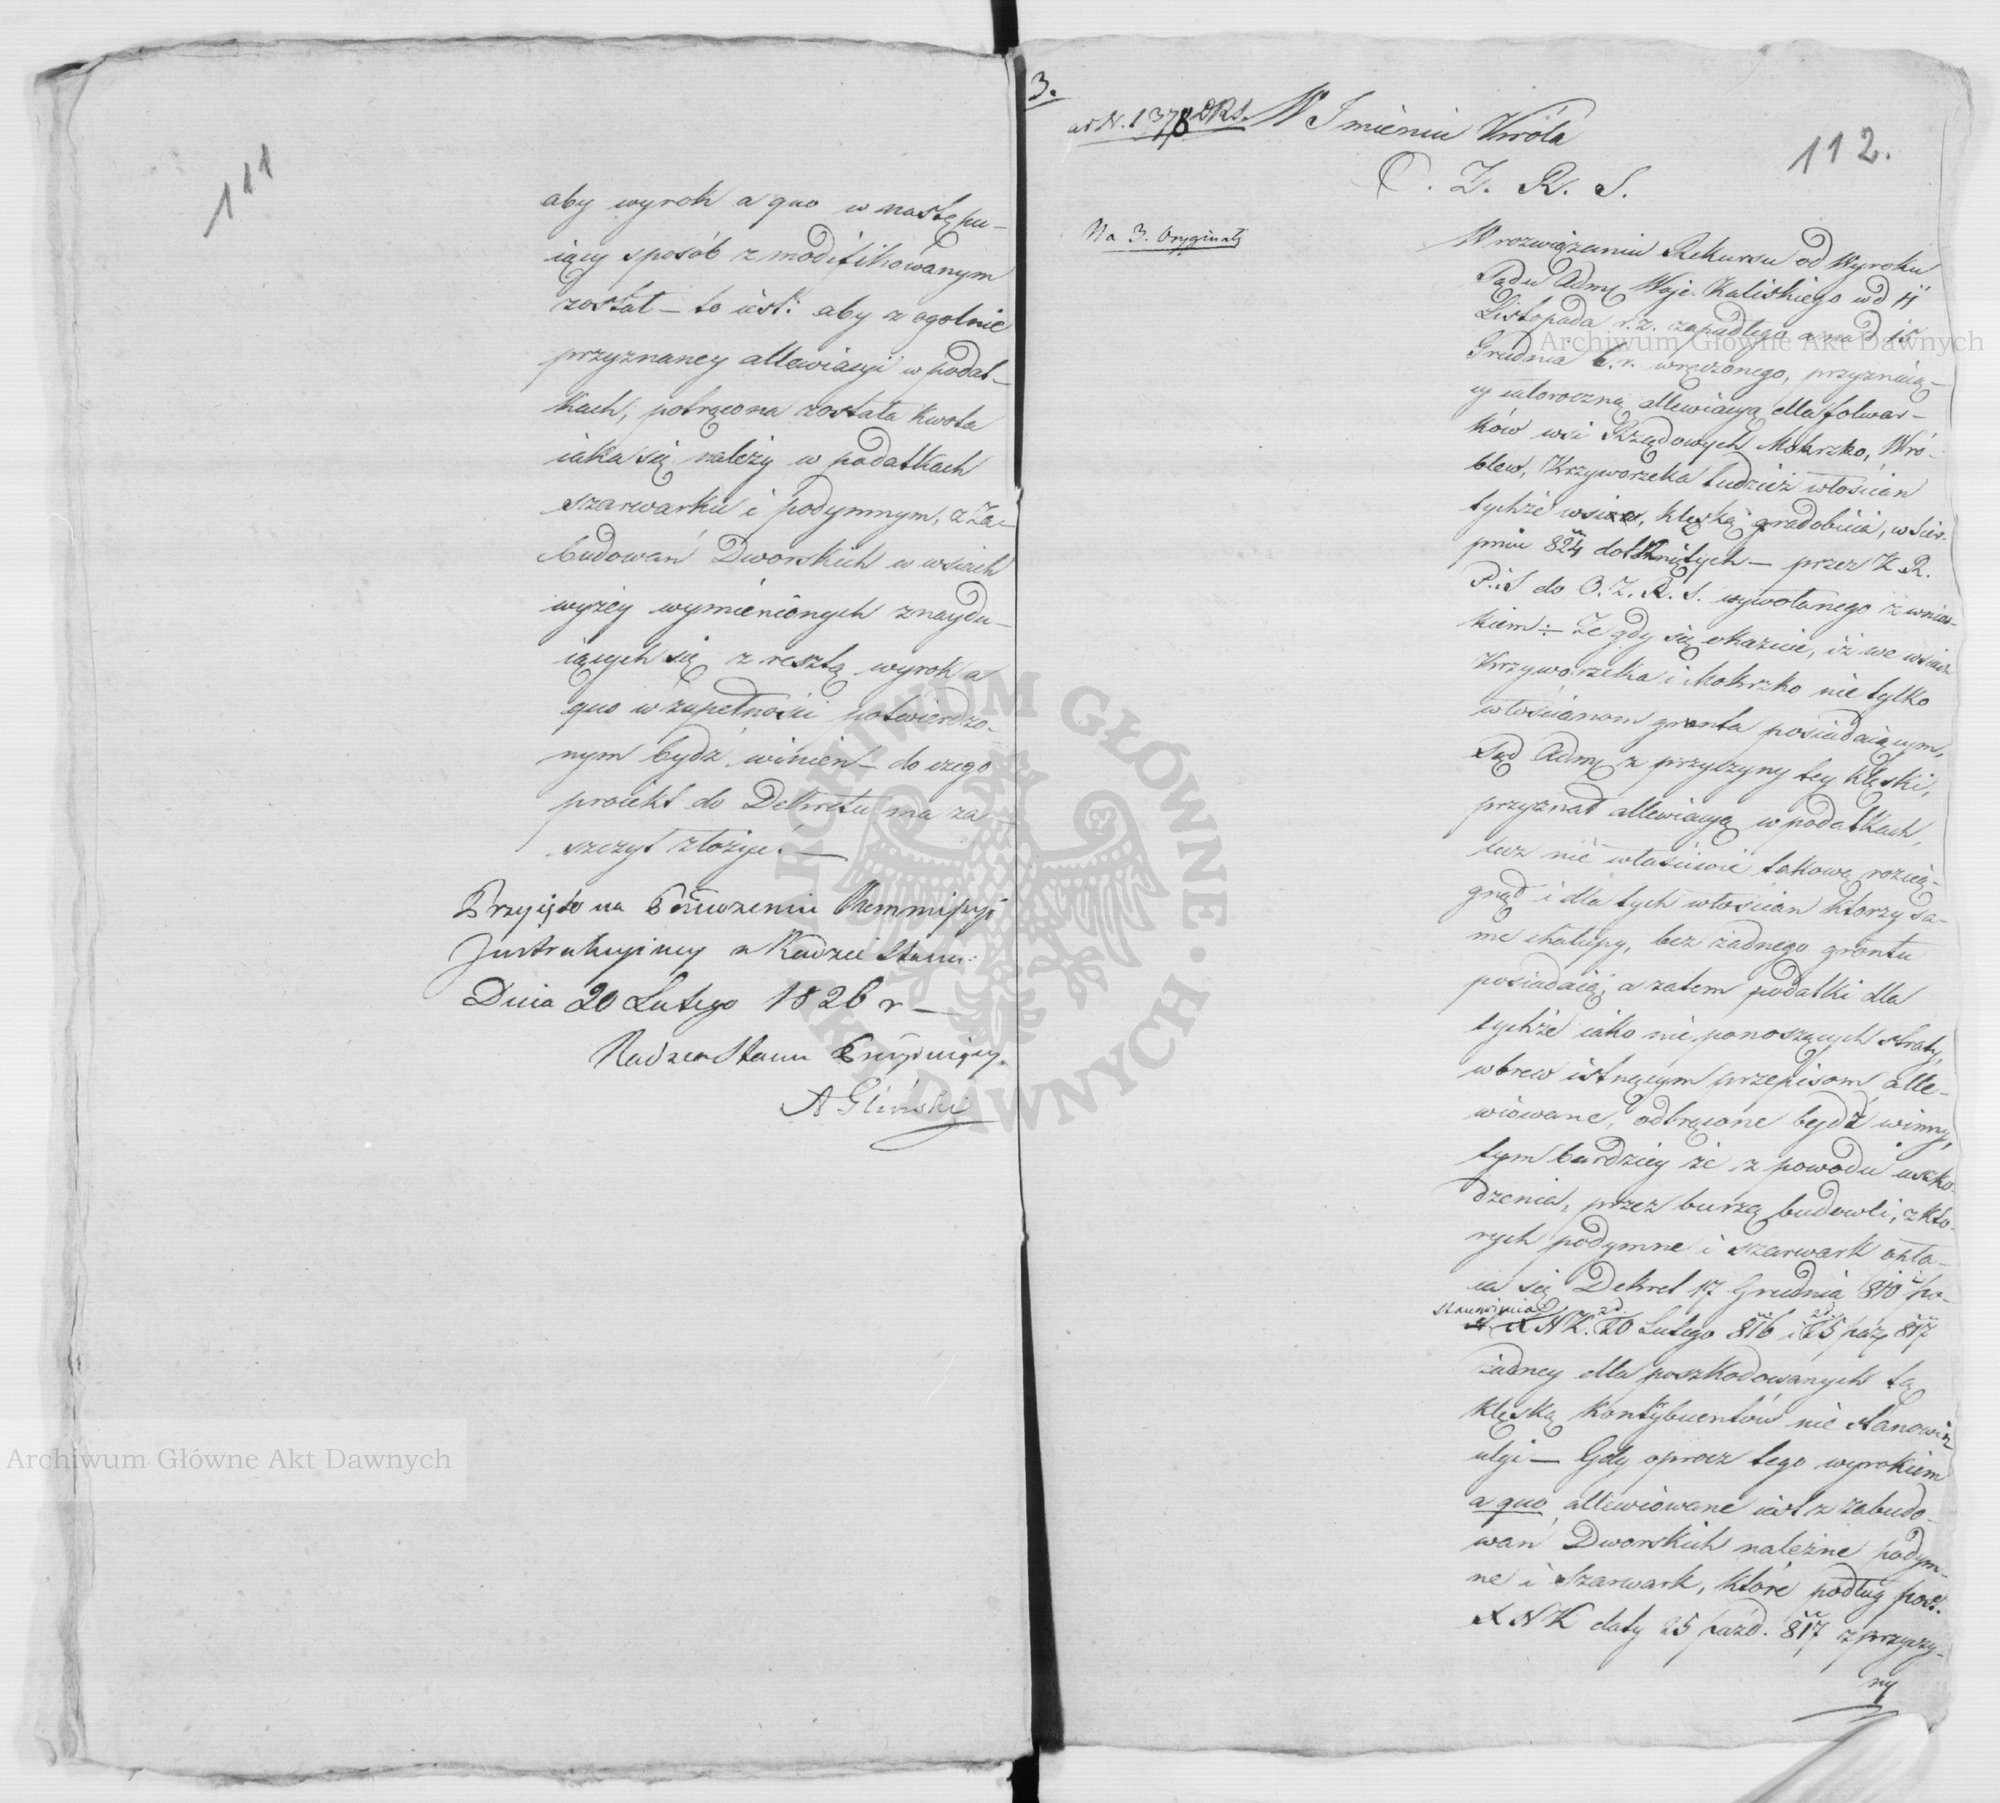 111
aby wyrok a quo w nastę pu-
iący sposób zmodifikowanym
został – to iest: aby z ogolnie
przyznaney allewiacyi w podat-
kach, potrącona została kwota
iaka się należy w podatkach
szarwarku i podymnym, z Za-
budowań Dworskich w wsiach
wyżey wymienionych znaydu-
iących się z resztą wyrok a
quo w zupełności potwierdzo-
nym bydź winien – do czego
proiekt do Dekretu ma za-
szczyt złożyć. –
Przyięto na Posiedzeniu Kommissyi
Instrukcyiney w Radzie Stanu.
Dnia 20 Lutego 1826 r –
Radzca Stanu
A Gliński
3.
ad N. 1378
W Imieniu Króla
112.
O. Z. R. S.
Na 3. Oryginały
W rozwiązaniu Rekursu od Wyroku
Sądu Admy Woje. Kaliskiego w d 4
Listopada r. z. zapadłego a na d 15
Grudnia t. r. wręczonego, przyznaią-
cy całoroczną allewiacyą dla folwar-
ków wsi Rządowych Mokrzko, Wró-
blew, Krzyworzeka tudzież włościan
tychże wsiow, klęską gradobicia, w Sier-
pniu 824 dotkniętych – przez K. R.
P. i S do O. Z. R. S. wywołanego z wnios-
kiem: – Że gdy się okazuie, iż we wsiach
Krzyworzeka i Mokrzko nie tylko
włościanom gronta posiadaiącym,
Sąd Admy z przyczyny tey klęski,
przyznał allewiacyą w podatkach,
lecz nie właściwie takową rozcią-
gnął i dla tych włościan którzy sa-
me chałupy, bez żadnego grontu
posiadaią, a zatem podatki dla
tychże iako nie ponoszących straty,
wbrew istnącym przepisom alle-
wiowane, odtrącone bydź winny,
tym bardziey że z powodu uszko-
dzenia, przez burzą budowli, z któ-
rych podymne i szarwark opła-
ca się Dekret 17 Grudnia 810 i po-
stanowienia
X N K. zd. 20 Lutego 816 i zd. 25 paźd 817
żadney dla poszkodowanych tą
klęską kontrybuentów nie stanowią
ulgi – Gdy oprocz tego wyrokiem
a quo allewiowane iest z zabudo-
wań Dworskich należne podym-
ne i Szarwark, które podług post.
X N K daty 25 paźd. 817 z przyczy-
ny
Archiwum Główne Akt Dawnych
Archiwum Główne Akt Dawnych
ARCHIWUM GŁÓWNE AKT DAWNYCH